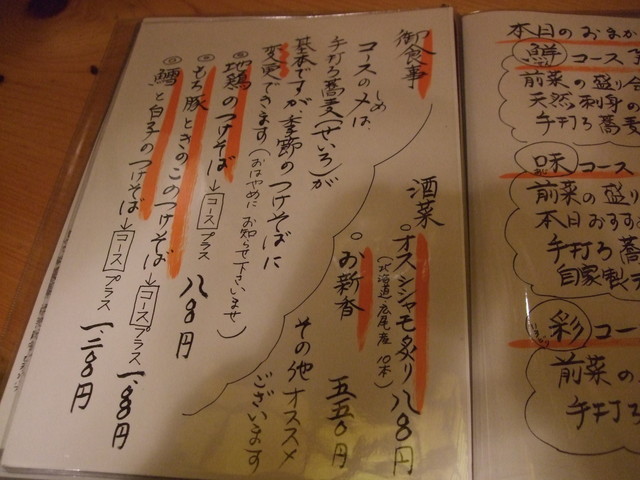 御食事
コースの〆は、
しめ
手打ち蕎麦(せいろ)が
基本ですが、季節のつけそばに
変更できます(おはやめにお知らせ下さいませ)
◎地鶏のつけそば→コースプラス 八〇〇円
◎もち豚ときのこのつけそば→コースプラス 一、〇〇〇円
◎鱈と白子のつけそば→コースプラス 一、二〇〇円
酒菜
○オスシシャモ炙り 八〇〇円
(北海道広尾産 10本)
○お新香 五五〇円
その他オススメ
ございます
本日のおまか
鮮コース
前菜の盛り合
天然刺身の
手打ち蕎麦
味コース
前菜の盛り
本日おすす
手打ち蕎
自家製デ
彩コー
前菜の
手打ち